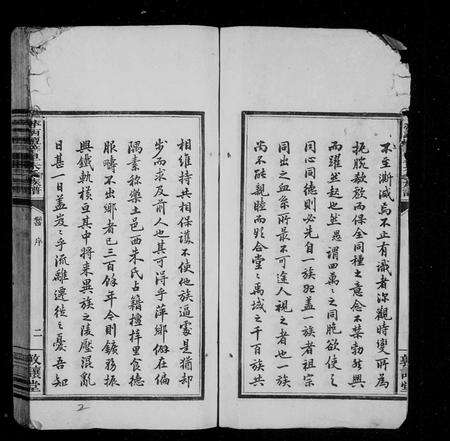 不至澌滅焉不止有識者深觀時變所為
扼腕敖敖而保全同種之意愈不禁勃然興
而躍然起也然愚謂四萬之同胞欲使之
同心同德則必先自一族始蓋一族者祖宗
同出之血系所最不可違人視之者也一族
尚不能親睦而貽合堂之萬域之千百族共
相維持共相保護不使他族逼處是猶却
步而求及前人也其可得乎萍鄉僻在偏
隅素稱樂土邑西朱氏占籍檀梓里食德
服疇不出鄉者已三百餘年今則鑛務振
興鐵軌橫亘其中將来異族之陵壓混亂
日甚一日蓋岌岌乎流離遷徙之憂吾知
卷 序
二
敦讓堂
2